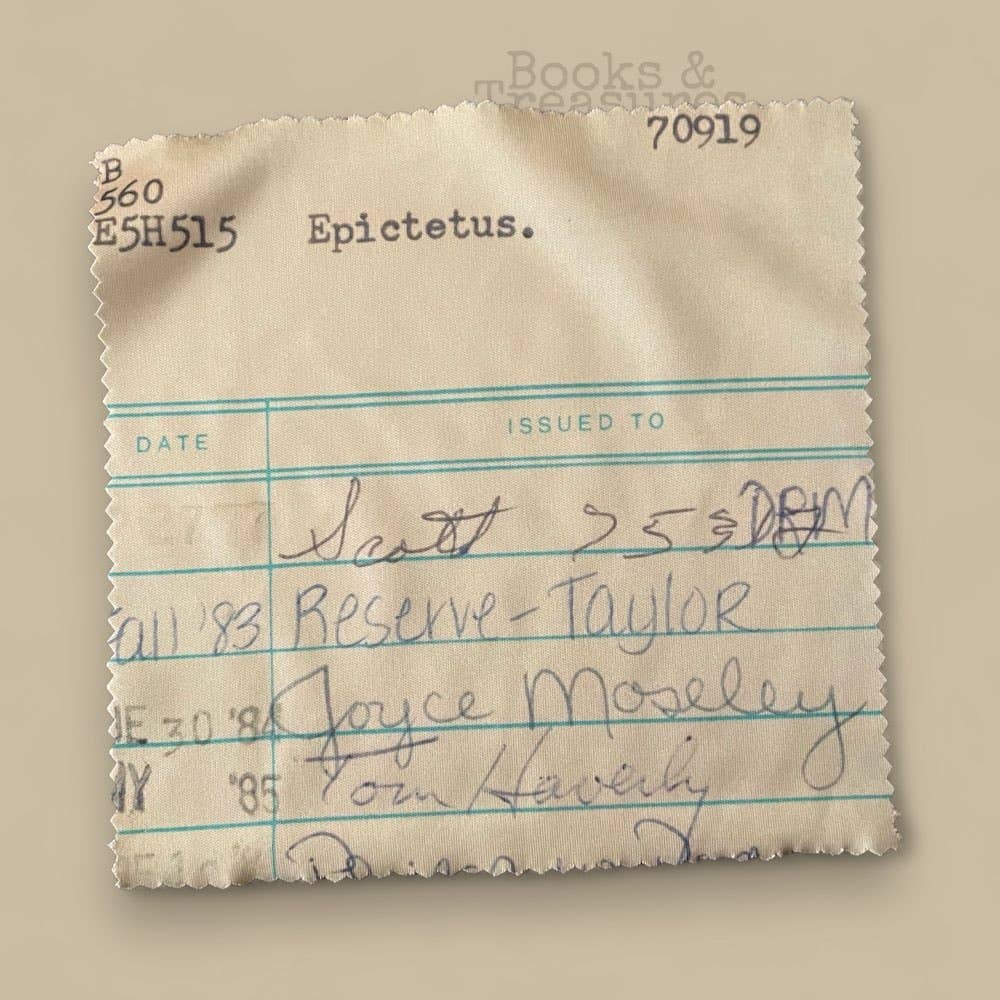 Books &
Treasures
70919
B
560
E5H515 Epictetus.
DATE ISSUED TO
Scott 253
all '83 Reserve-Taylor
E 30 '84 Joyce Moseley
'85 Tom Haverly